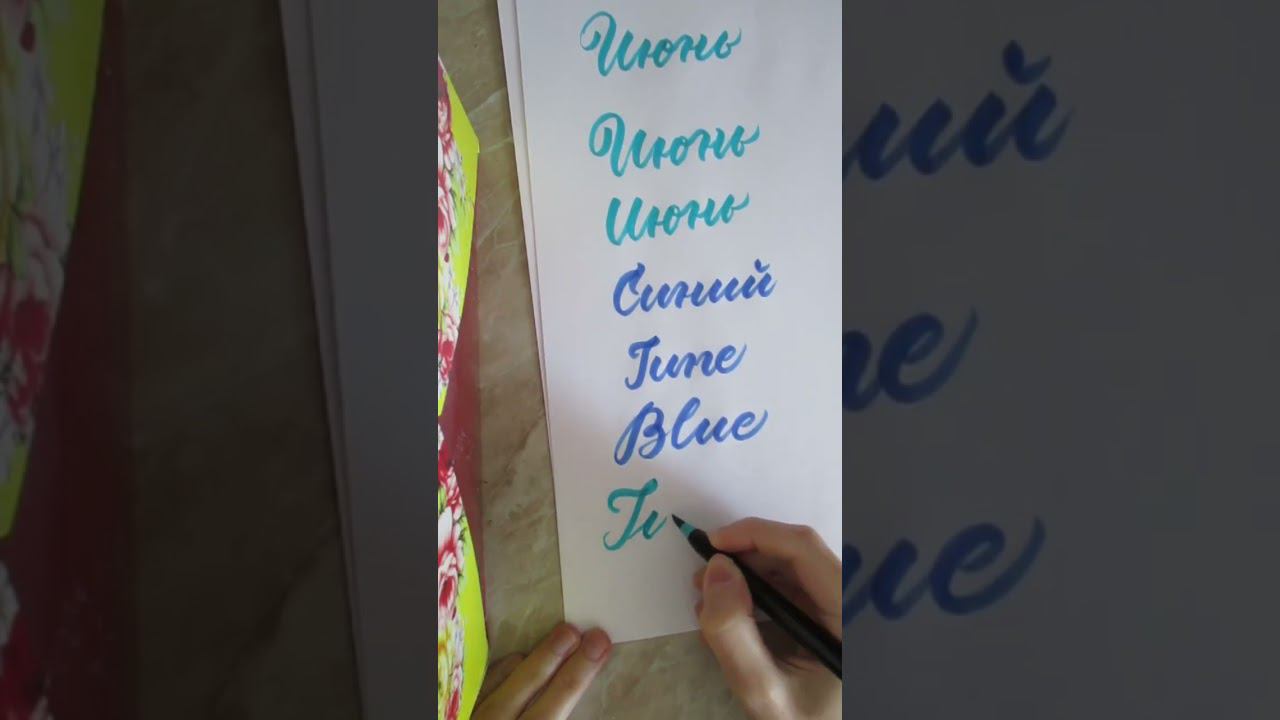 Июнь
Июнь
Июнь
Синий
June
Blue
Ju